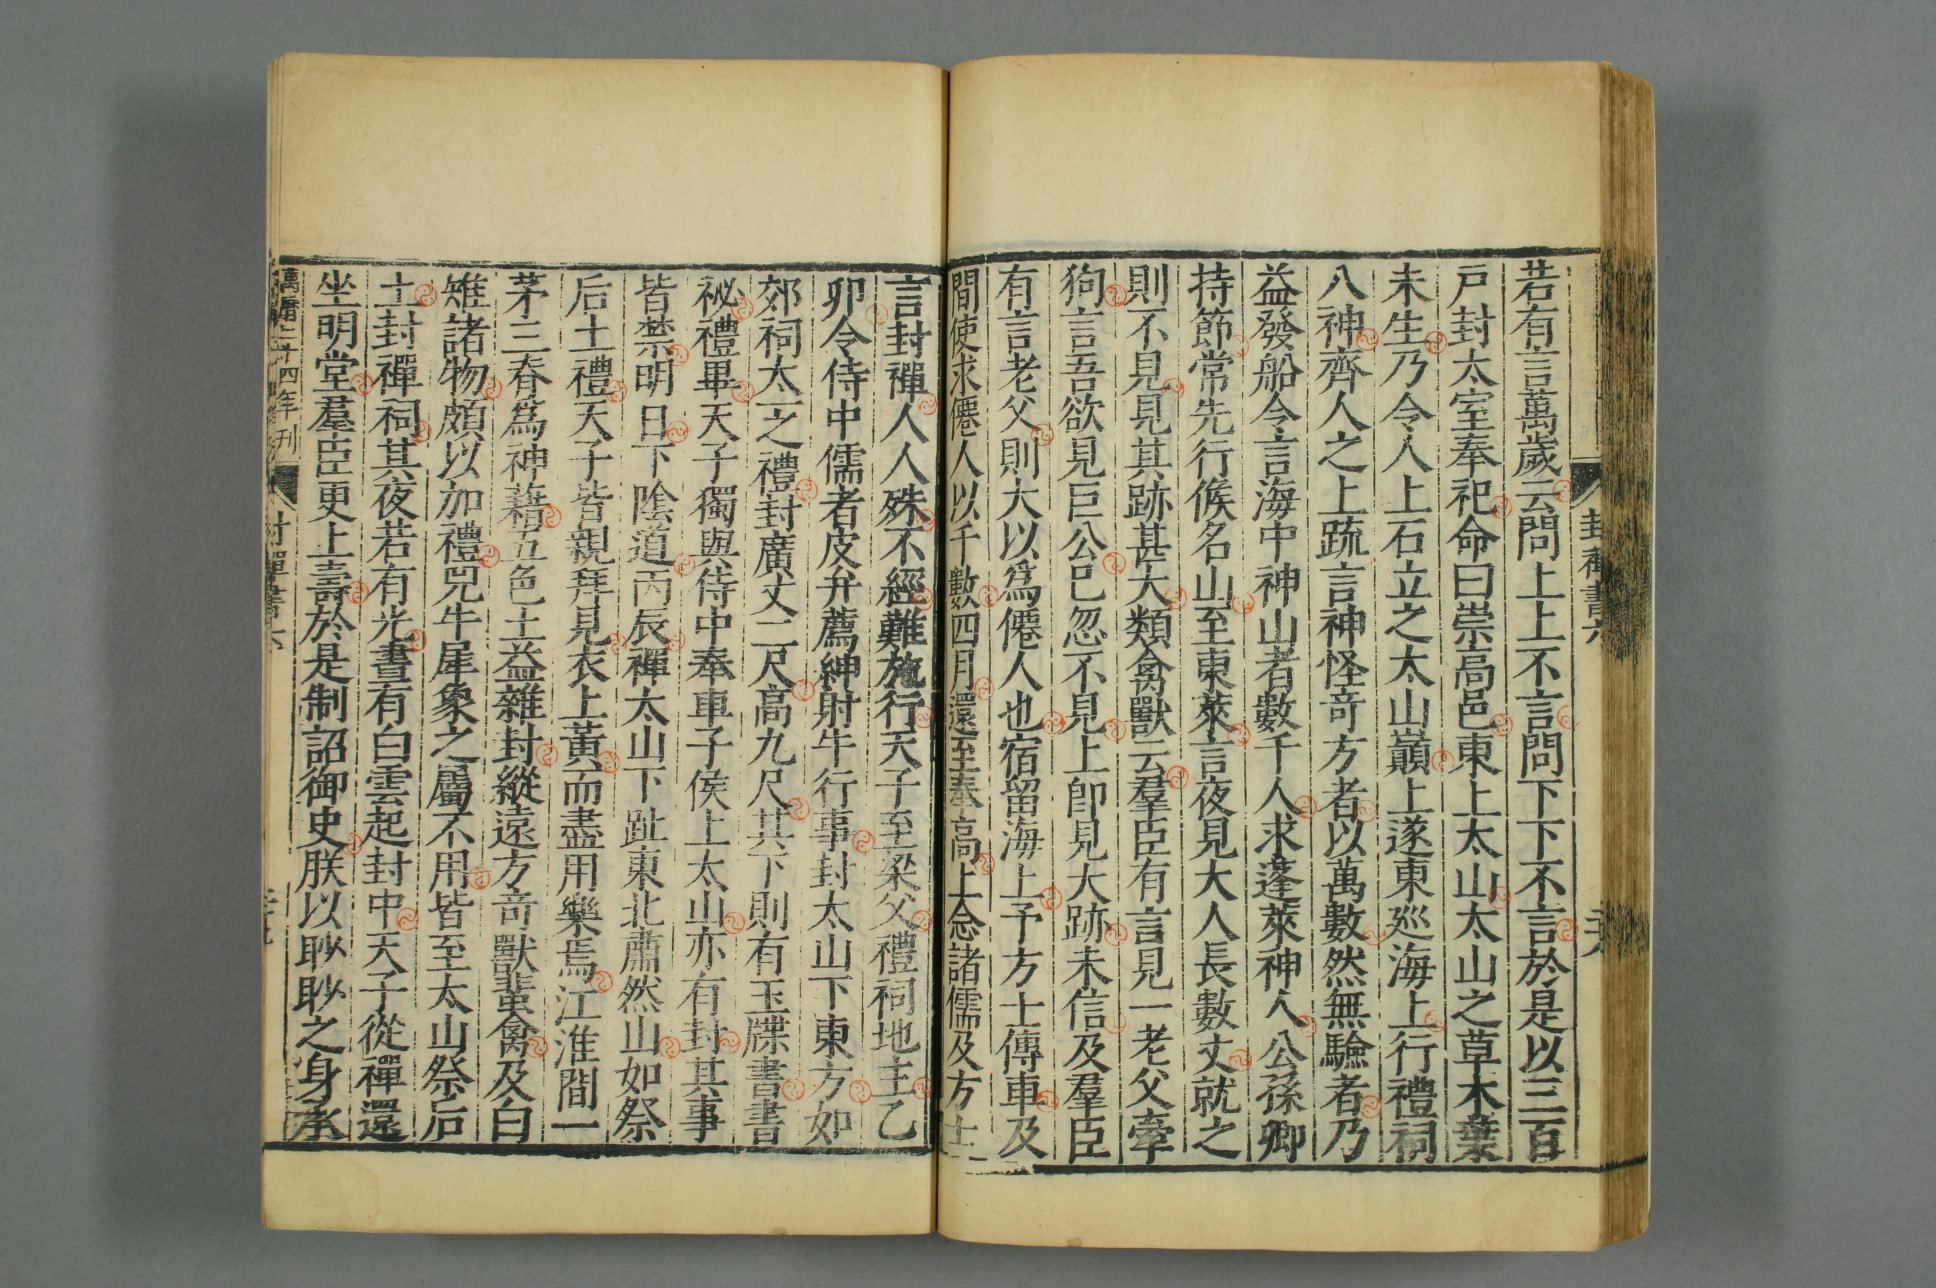 若有言萬歲云問上上不言問下下不言於是以三百
戸封太室奉祀命曰崇高邑東上太山太山之草木葉
未生乃令人上石立之太山巔上遂東巡海上行禮祠
八神齊人之上疏言神怪奇方者以萬數然無驗者乃
益發船令言海中神山者數千人求蓬萊神人公孫卿
持節常先行候名山至東萊言夜見大人長數丈就之
則不見見其跡甚大類禽獸云羣臣有言見一老父牽
狗言吾欲見巨公已忽不見上卽見大跡未信及羣臣
有言老父則大以爲僊人也宿留海上予方士傳車及
間使求僊人以千數四月還至奉高上念諸儒及方士
言封禪人人殊不經難施行天子至梁父禮祠地主乙
卯令侍中儒者皮弁薦紳射牛行事封太山下東方如
郊祠太一之禮封廣丈二尺高九尺其下則有玉牒書書
祕禮畢天子獨與侍中奉車子侯上太山亦有封其事
皆禁明日下陰道丙辰禪太山下趾東北肅然山如祭
后土禮天子皆親拜見衣上黃而盡用樂焉江淮間一
茅三脊爲神藉五色土益雜封縱遠方奇獸蜚禽及白
雉諸物頗以加禮兕牛犀象之屬不用皆至太山祭后
土封禪祠其夜若有光晝有白雲起封中天子從禪還
坐明堂羣臣更上壽於是制詔御史朕以眇眇之身承
萬曆二十四年刊
封禪書六